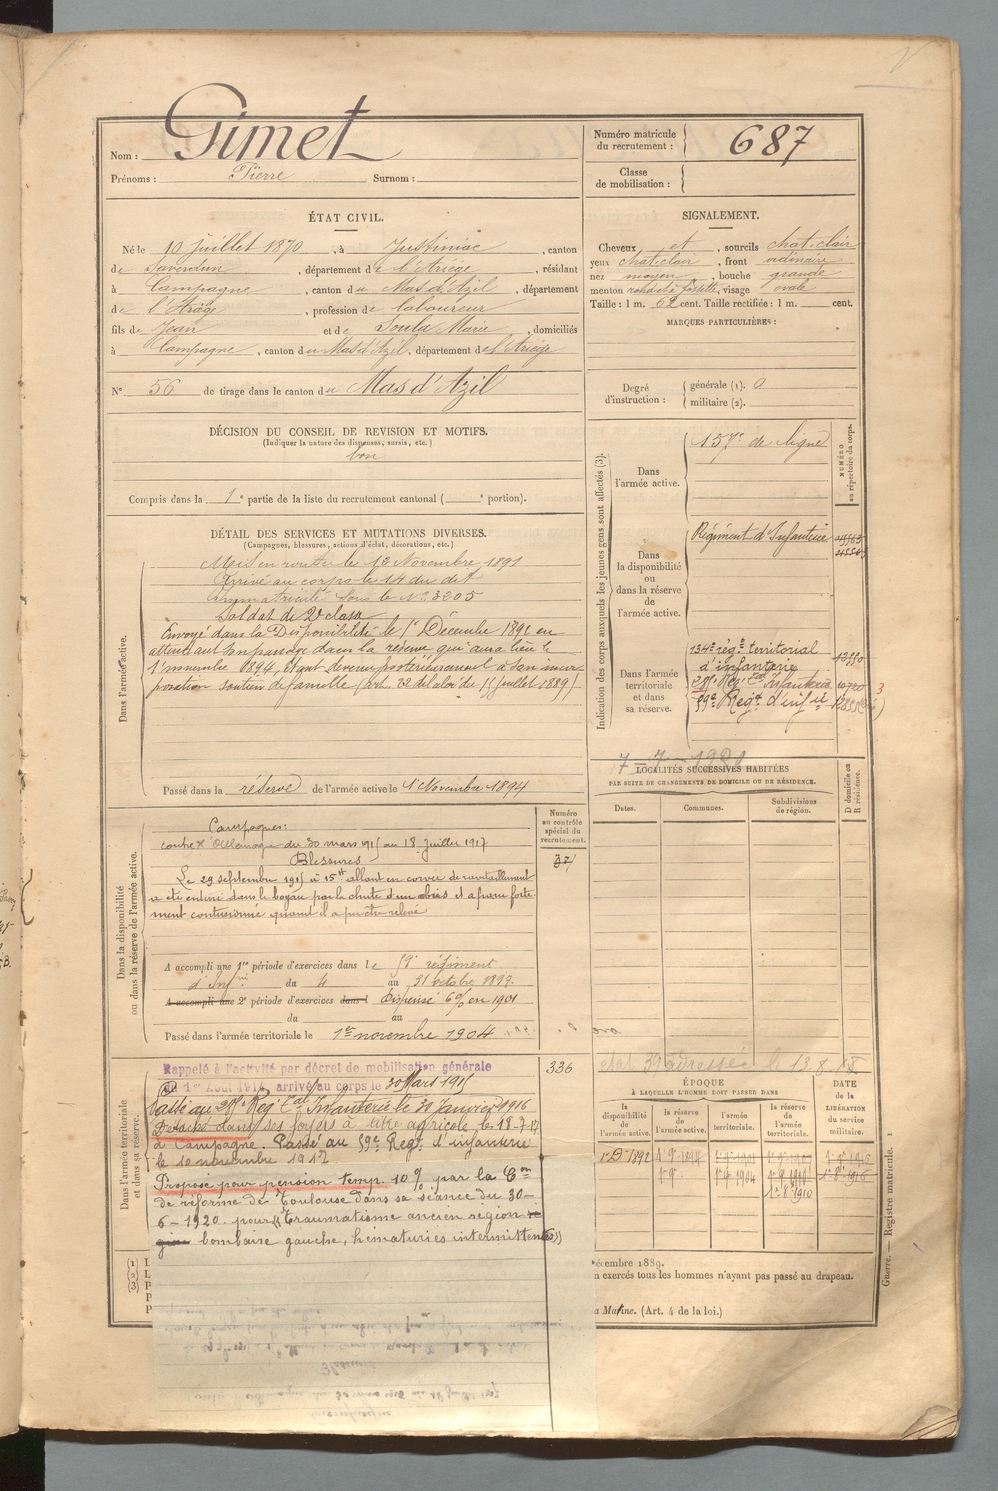 Nom : Gimet
Prénoms : Pierre Surnom :
Numéro matricule du recrutement : 687
Classe de mobilisation :
ÉTAT CIVIL.
Né le 10 juillet 1870, à Justiniac, canton
de Saverdun, département de l'Ariège, résidant
à Campagne, canton du Mas d'Azil, département
de l'Ariège, profession de laboureur
fils de Jean et de Soula Marie, domiciliés
à Campagne, canton du Mas d'Azil, département de l'Ariège
N° 56 de tirage dans le canton du Mas d'Azil
SIGNALEMENT.
Cheveux et, sourcils chat. clair
yeux chat. clair, front ordinaire
nez moyen, bouche grande
menton rond à fossette, visage ovale
Taille : 1 m. 62 cent. Taille rectifiée : 1 m. cent.
MARQUES PARTICULIÈRES :
Degré d'instruction : générale (1). 0
militaire (2).
DÉCISION DU CONSEIL DE REVISION ET MOTIFS.
(Indiquer la nature des dispenses, sursis, etc.)
bon
Compris dans la 1e partie de la liste du recrutement cantonal ( e portion).
DÉTAIL DES SERVICES ET MUTATIONS DIVERSES.
(Campagnes, blessures, actions d'éclat, décorations, etc.)
Dans l'armée active.
Mis en route le 12 Novembre 1891
Arrivé au corps le 14 du dit
Immatriculé sous le N° 3205
Soldat de 2e classe
Envoyé dans la Disponibilité le 1er Décembre 1892 en
attendant son passage dans la réserve qui aura lieu le
1er novembre 1894, étant devenu postérieurement à son incor
poration soutien de famille (art. 22 de la loi du 15 juillet 1889)
Passé dans la réserve de l'armée active le 1er Novembre 1894
Indication des corps auxquels les jeunes gens sont affectés (3).
NUMÉRO au répertoire du corps.
Dans l'armée active.
157e de ligne
Dans la disponibilité ou dans la réserve de l'armée active.
Régiment d'Infanterie
Dans l'armée territoriale et dans sa réserve.
134e rég.t territorial
d'infanterie
Rég. Tal Infanterie
59e Régt d'inf.ie
3
LOCALITÉS SUCCESSIVES HABITÉES
PAR SUITE DE CHANGEMENTS DE DOMICILE OU DE RÉSIDENCE.
Dates. Communes. Subdivisions de région. D domicile ou R résidence.
Dans la disponibilité ou dans la réserve de l'armée active.
Numéro au contrôle spécial du recrutement.
Campagnes:
contre l'Allemagne du 30 mars 1915 au 18 Juillet 1917
Blessures
Le 29 septembre 1915 à 15h allant en corvée de ravitaillement
a été enterré dans le boyau par la chute d'un obus et a paru forte-
ment contusionné quand il a pu être relevé
A accompli une 1re période d'exercices dans le 59e régiment
d'Infrie du 4 au 31 octobre 1897
A accompli une 2e période d'exercices dans l Dispensé 6% en 1901
du au
Passé dans l'armée territoriale le 1er novembre 1904
Dans l'armée territoriale et dans sa réserve.
Rappelé à l'activité par décret de mobilisation générale
du 1er Août 1914, arrivé au corps le 30 Mars 1915
336
Passé au Rég. Tal Infanterie le 30 Janvier 1916
Détaché dans ses foyers à titre agricole, le 18-7-17
à Campagne. Passé au 59e Régt d'infanterie
le 10 novembre 1917
Proposé pour pension temp. 10% par la Con
de réforme de Toulouse dans sa séance du 30-
6-1920. pour "Traumatisme ancien région ré
gion lombaire gauche, hématuries intermittentes"
ÉPOQUE
À LAQUELLE L'HOMME DOIT PASSER DANS
la disponibilité de l'armée active. la réserve de l'armée active. l'armée territoriale. la réserve de l'armée territoriale.
DATE de la LIBÉRATION du service militaire.
Guerre. — Registre matricule. 1
écembre 1889.
n exercés tous les hommes n'ayant pas passé au drapeau.
a Marine. (Art. 4 de la loi.)